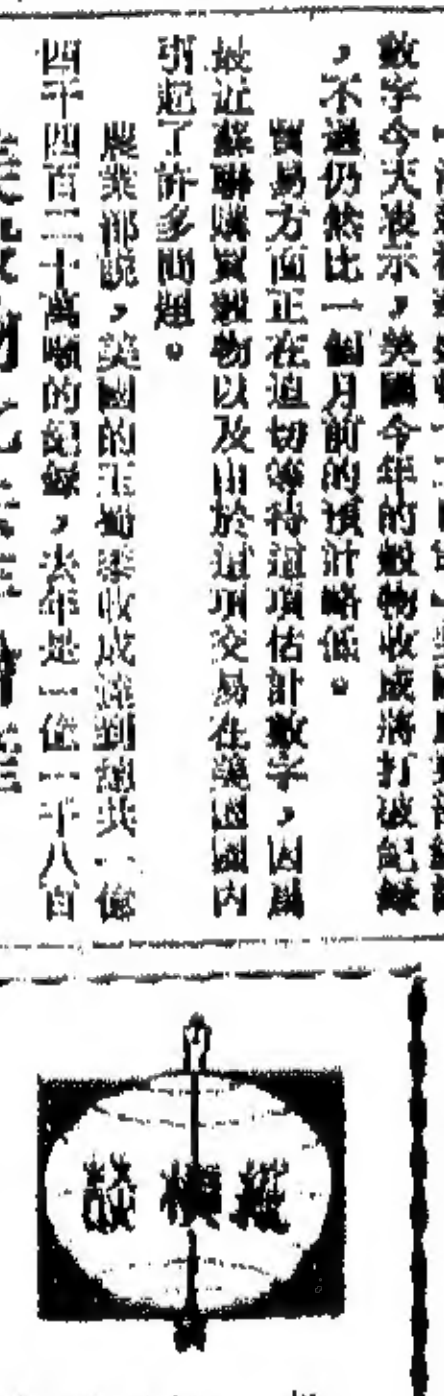 數字今天表示，美國今年的穀物收成將打破紀錄
，不過仍然比一個月前的預計略低。
貿易方面正在迫切等待這項估計數字，因為
最近蘇聯購買穀物以及由於這項交易在美國國內
引起了許多問題。
農業部說，美國的玉蜀黍收成達到總共一億
四千四百三十萬噸的紀錄，去年是一億一千八百
縱橫談